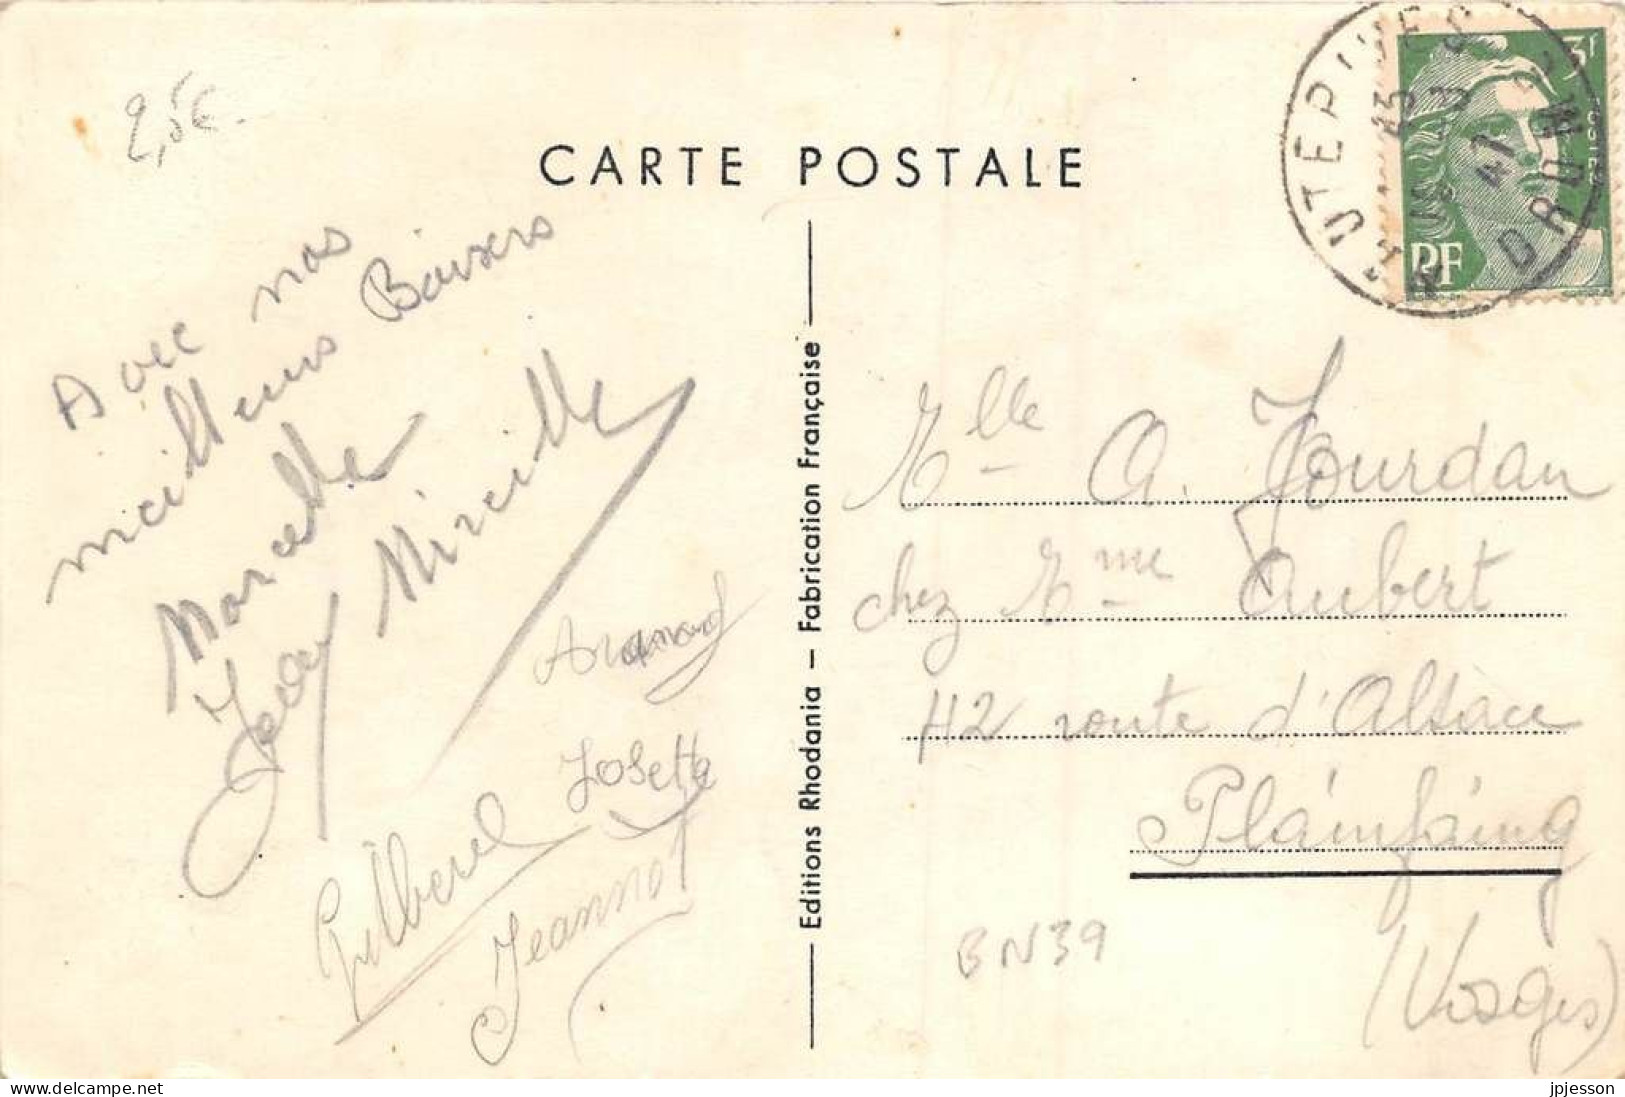 2,5€
CARTE POSTALE
3F
POSTES
RF
HAUTERIVES
DROME
13
47
Avec nos
meilleurs Baisers
Marcelle
Jean Mireille
Armand
Josette
Gilbert
Jeannot
Editions Rhodania - Fabrication Française
Mlle A. Jourdan
chez Mme Aubert
42 route d'Alsace
Plainfaing
(Vosges)
BN39
www.delcampe.net
jpjesson